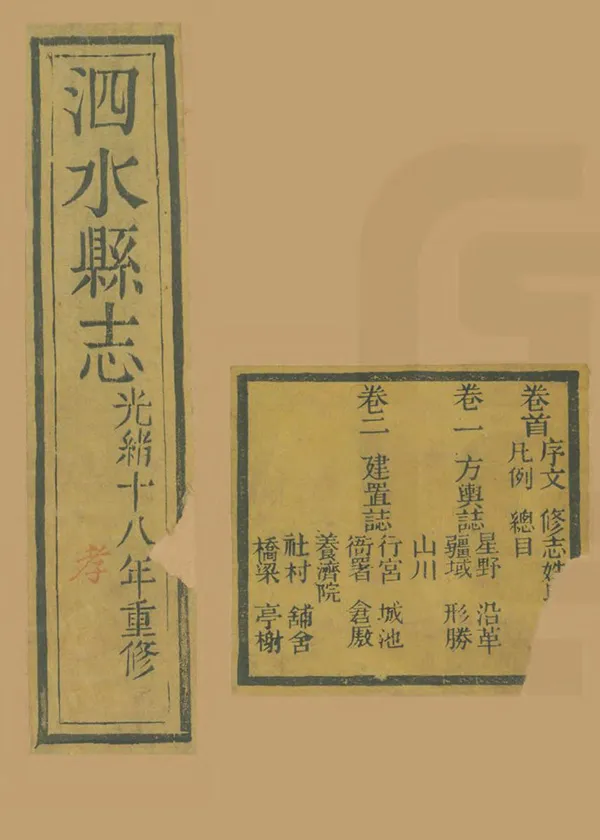 泗水縣志
光緒十八年重修
孝
卷首 序文 修志姓
凡例 總目
卷一 方輿誌 星野 沿革
疆域 形勝
山川
卷二 建置誌 行宮 城池
衙署 倉厫
養濟院
社村 舖舍
橋梁 亭榭